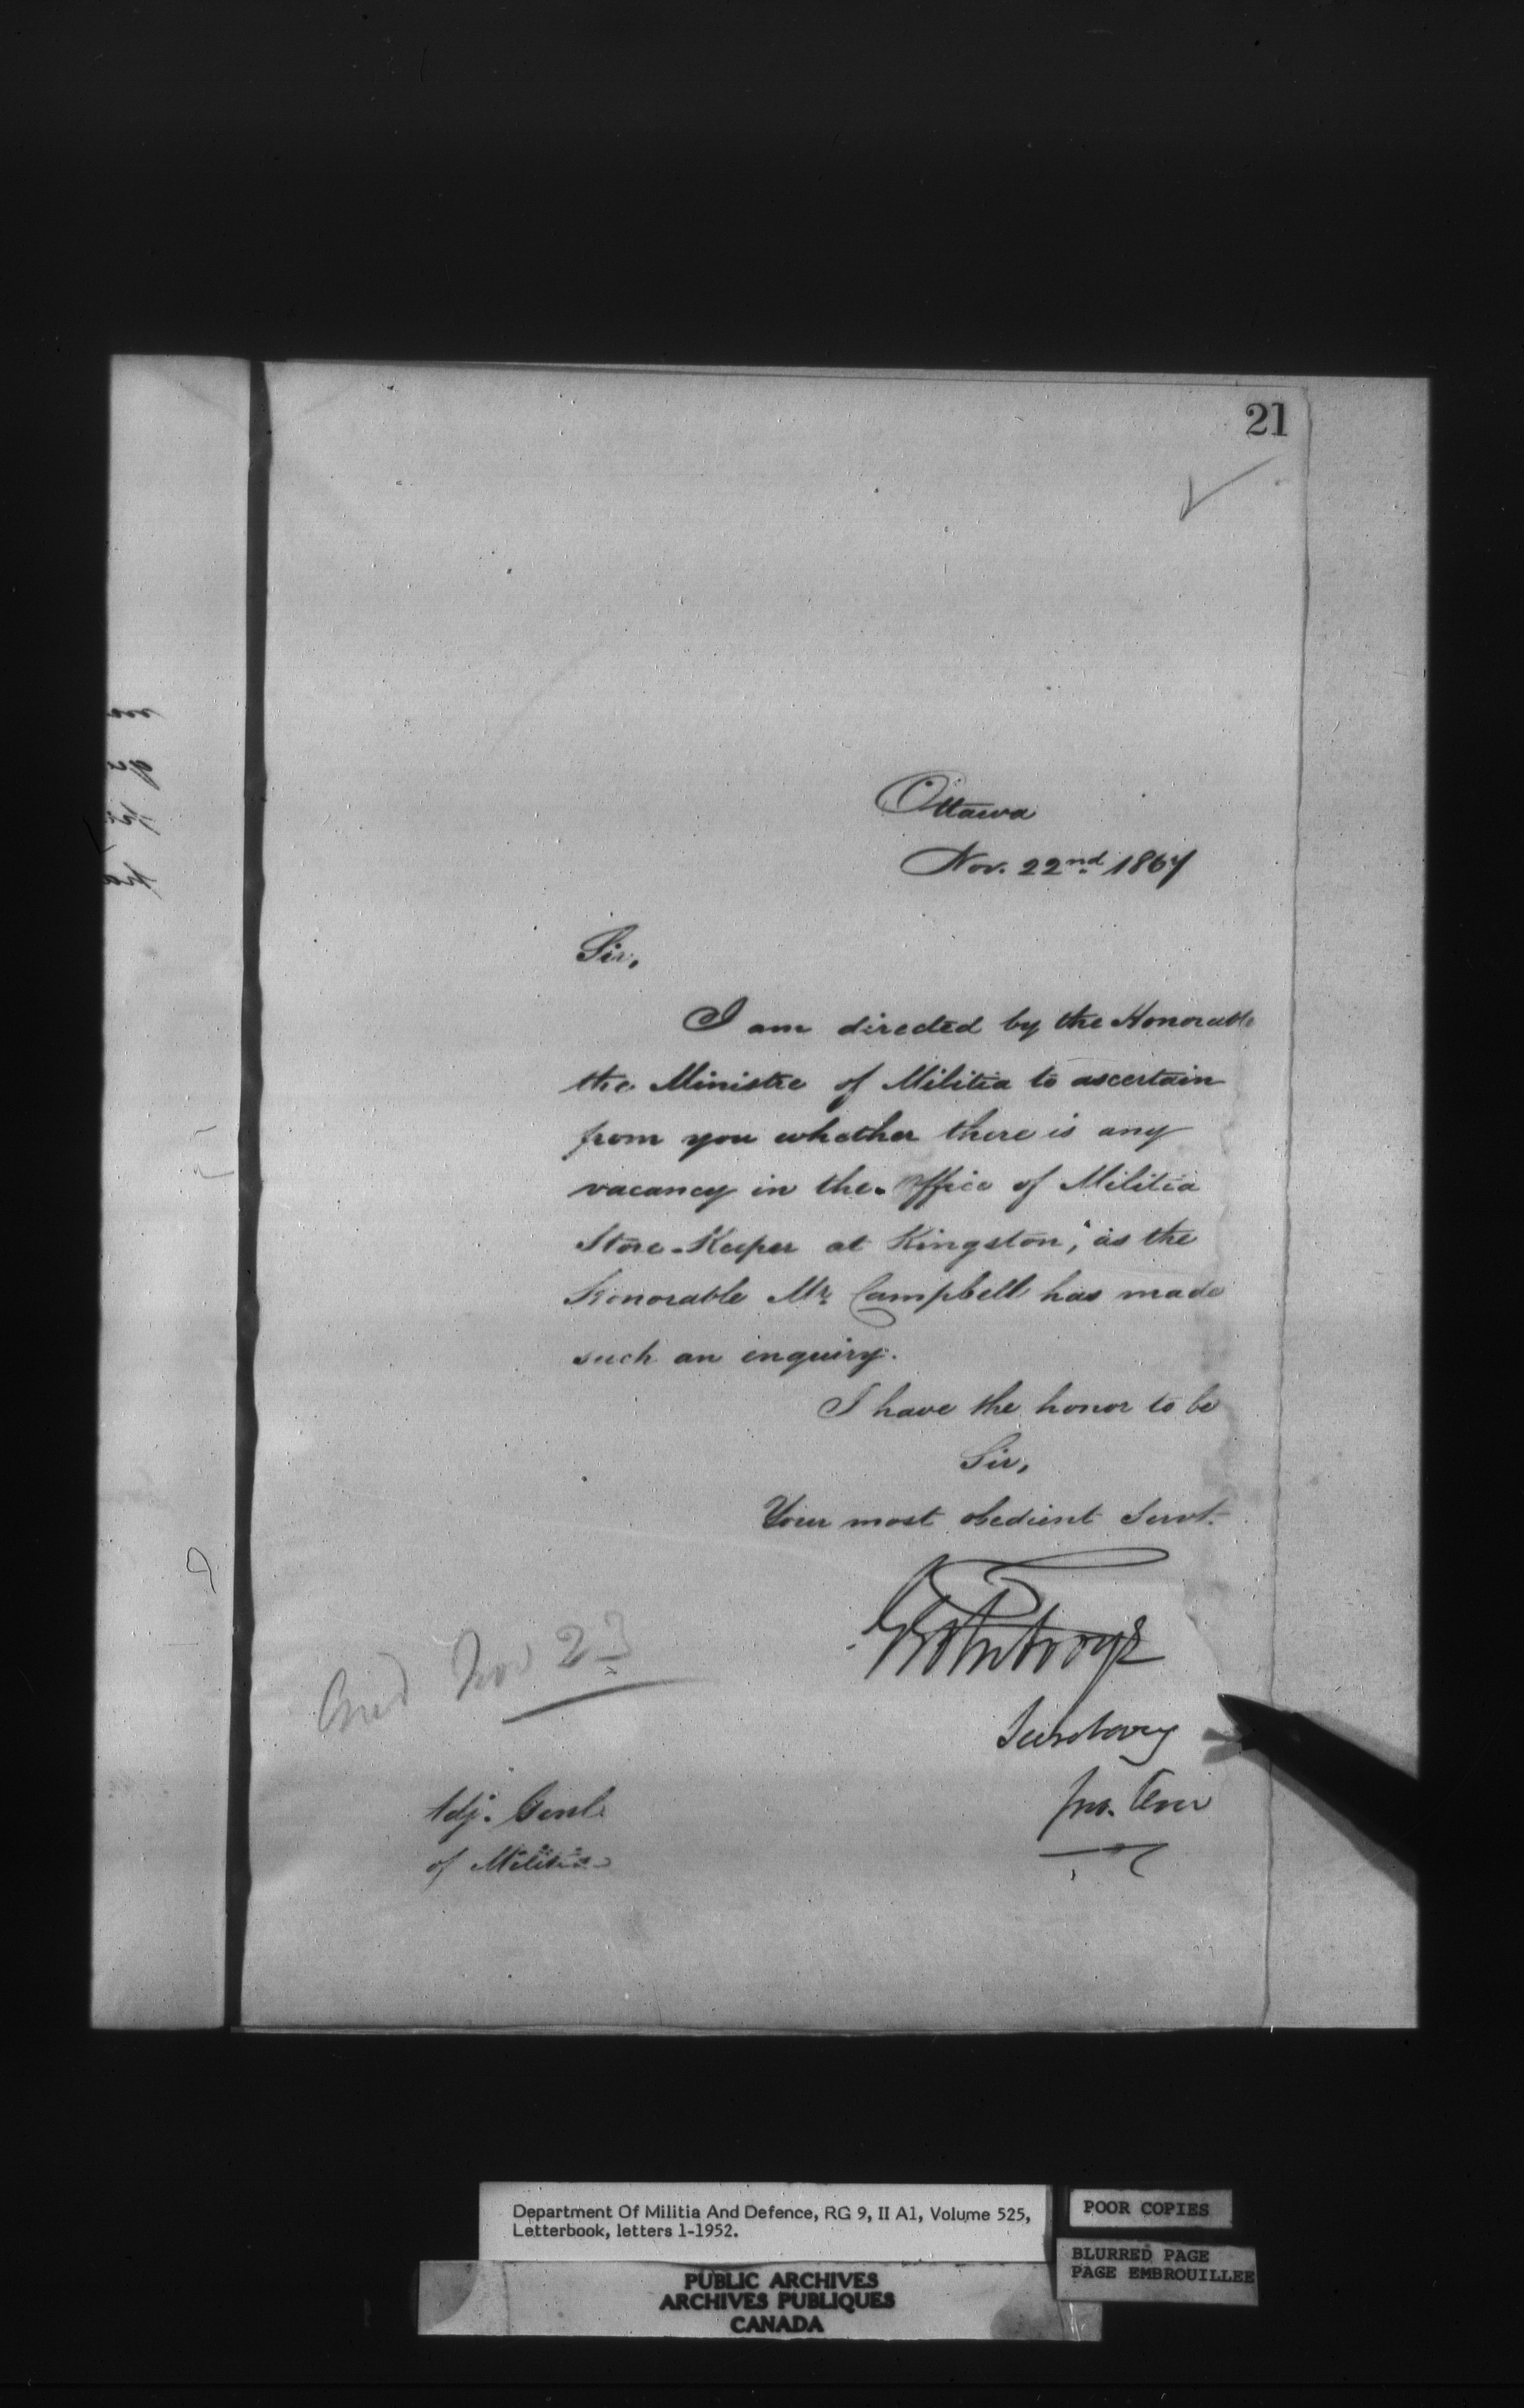 21
Ottawa
Nov. 22nd 1867
Sir,
I am directed by the Honorable
the Ministre of Militia to ascertain
from you whether there is any
vacancy in the office of Militia
Store-Keeper at Kingston, as the
Honorable Mr. Campbell has made
such an inquiry.
I have the honor to be
Sir,
Your most obedient Servt.
Nov 23
Adj. Genl.
of Militia
Department Of Militia And Defence, RG 9, II A1, Volume 525,
Letterbook, letters 1-1952.
POOR COPIES
BLURRED PAGE
PAGE EMBROUILLEE
PUBLIC ARCHIVES
ARCHIVES PUBLIQUES
CANADA